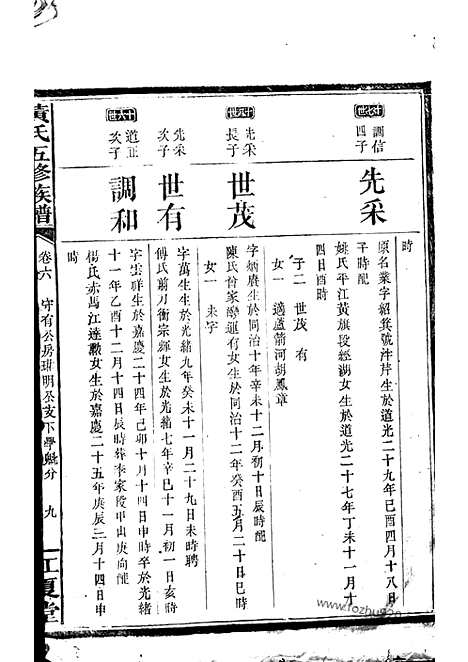 時
十七世
調信四子
先采
原名業字紹箕號泮芹生於道光二十九年己酉四月十八日
子時配
姚氏平江黃旗段經湖女生於道光二十七年丁未十一月十
四日酉時
子二 世茂 有
女一 適蘆箭河胡鳳章
先采長子
世茂
字炳賡生於同治十年辛未十二月初十日辰時配
陳氏曾家發運有女生於同治十二年癸酉五月二十日巳時
女一 未字
先采次子
世有
字萬生生於光緒九年癸未十一月二十九日未時聘
傅氏前刀衝宗輝女生於光緒七年辛巳十一月初一日亥時
十六世
道正次子
調和
字雲祥生於嘉慶二十四年己卯十月十四日申時卒於光緒
十一年乙酉十二月十四日辰時葬李家段甲山庚向配
楊氏赤馬江達勳女生於嘉慶二十五年庚辰三月十四日申
時
黃氏五修族譜
卷六 守有公房 明公支下學魁分 九
江夏堂